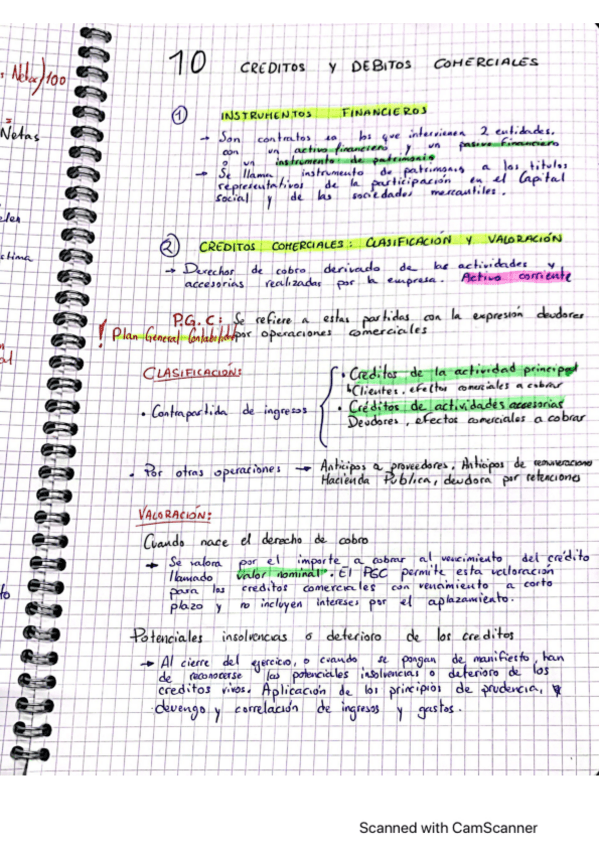 10 CREDITOS Y DEBITOS COMERCIALES
① INSTRUMENTOS FINANCIEROS
→ Son contratos en los que intervienen 2 entidades.
con un activo financiero y un pasivo financiero
o un instrumento de patrimonio
→ Se llama instrumento de patrimonio a los titulos
representativos de la participación en el Capital
social y de las sociedades mercantiles.
② CREDITOS COMERCIALES: CLASIFICACIÓN Y VALORACIÓN
→ Derechos de cobro derivado de las actividades y
accesorias realizadas por la empresa. Activo corriente
P.G.C: Se refiere a estas partidas con la expresión deudores
! Plan General Contabilidad por operaciones comerciales
CLASIFICACIÓN:
• Contrapartida de ingresos
• Creditos de la actividad principal
Clientes, efectos comerciales a cobrar
• Créditos de actividades accesorias
Deudores, efectos comerciales a cobrar
• Por otras operaciones → Anticipos a proveedores. Anticipos de remuneraciones
Hacienda Publica, deudora por retenciones
VALORACIÓN:
Cuando nace el derecho de cobro
→ Se valora por el importe a cobrar al vencimiento del crédito
llamado "valor nominal". El PGC permite esta valoración
para los creditos comerciales con vencimiento a corto
plazo y no incluyen intereses por el aplazamiento.
Potenciales insolvencias o deterioro de los creditos
→ Al cierre del ejercicio, o cuando se pongan de manifiesto, han
de reconocerse las potenciales insolvencias o deterioro de los
creditos vivos. Aplicación de los principios de prudencia,
devengo y correlación de ingresos y gastos.
Netas/100
Netas
Scanned with CamScanner